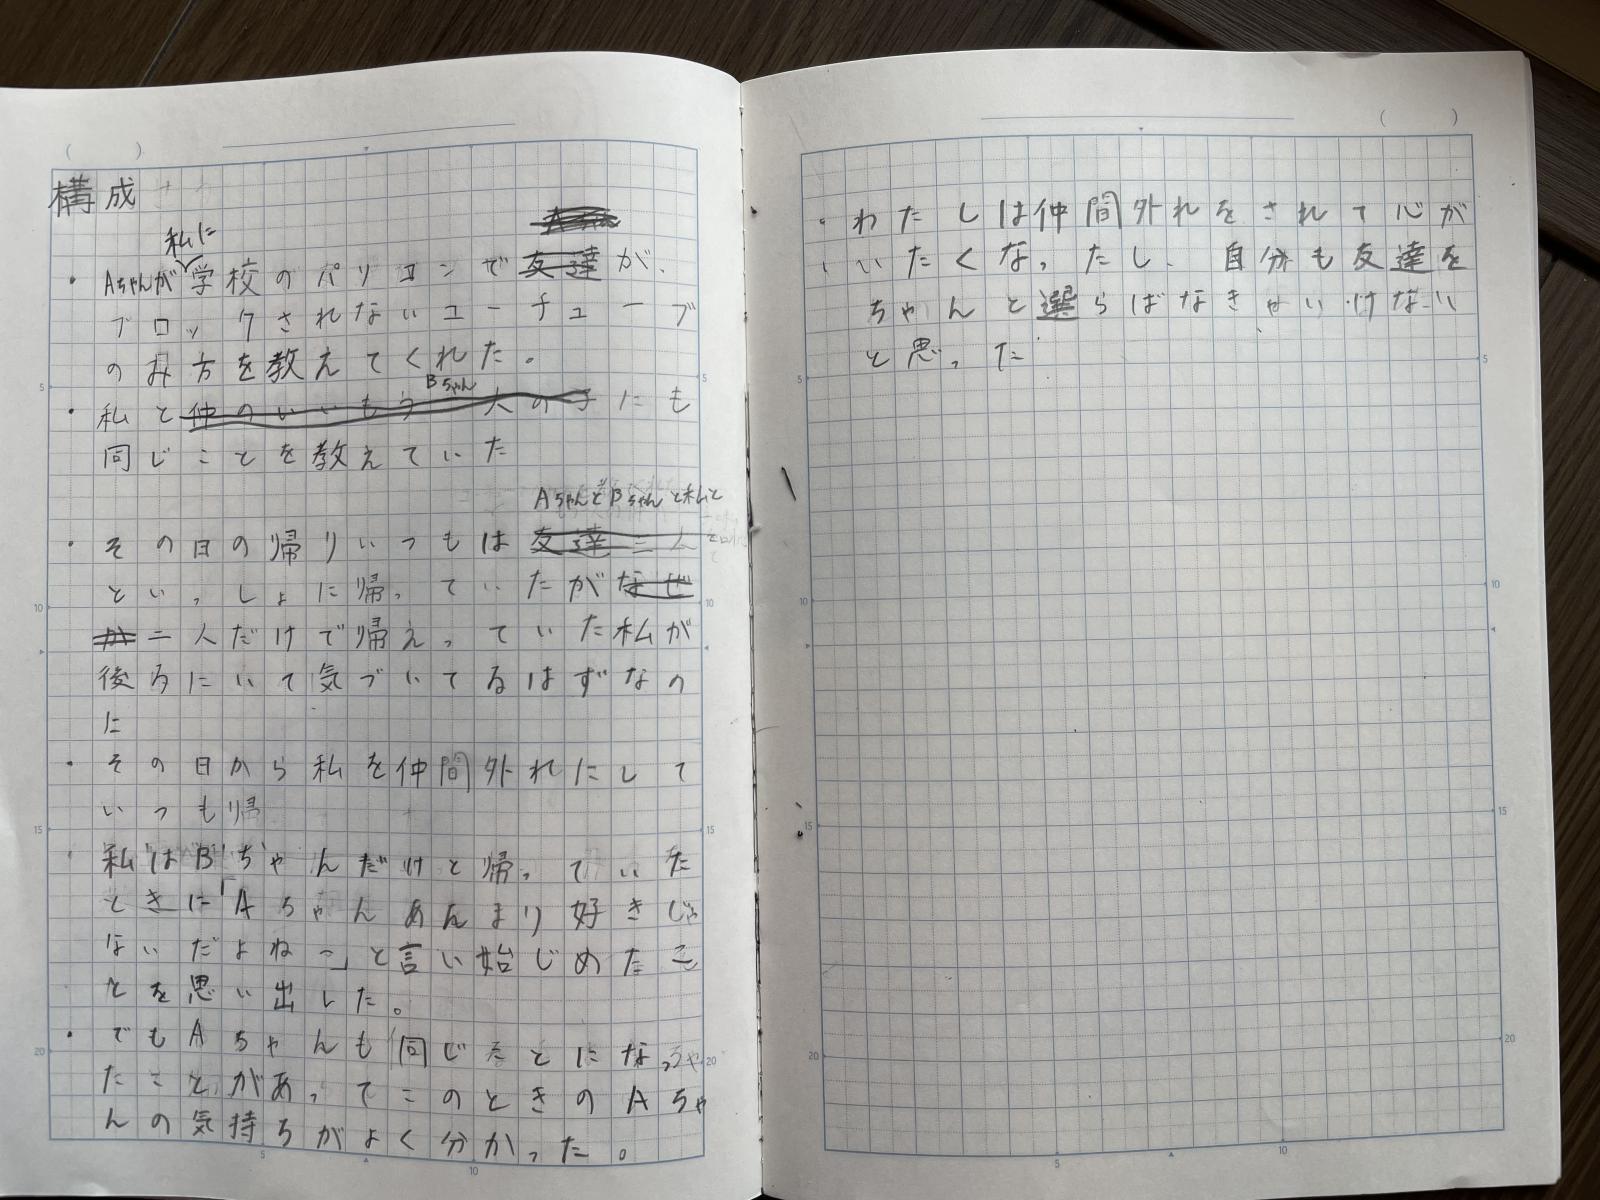 構成
私に
・Aちゃんが学校のパソコンで友達が、
ブロックされないユーチューブ
のみ方を教えてくれた。
Bちゃん
・私と仲のいいもう一人の子にも
同じことを教えていた
AちゃんとBちゃんと私と
・その日の帰りいつもは友達二人
といっしょに帰っていたがなぜ
か二人だけで帰えっていた私が
後ろにいて気づいてるはずなの
に
・その日から私を仲間外れにして
いつも帰
・私はBちゃんだけと帰っていた
ときに「Aちゃんあんまり好きじゃ
ないだよね〜」と言い始じめたこ
とを思い出した。
・でもAちゃんも同じことになっちゃ
たことがあってこのときのAちゃ
んの気持ちがよく分かった。
・わたしは仲間外れをされて心が
いたくなったし、自分も友達を
ちゃんと選らばなきゃいけない
と思った
5
10
15
20
5
10
5
10
15
20
5
10
15
20
5
10